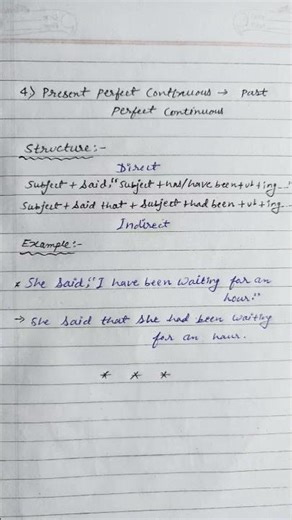 4) Present Perfect Continuous → Past
Perfect Continuous
Structure:-
Direct
Subject + Said,"Subject + has/have been + vb + ing..."
Subject + Said that + Subject + had been + vb + ing...
Indirect
Example:-
* She Said,"I have been waiting for an
hour."
→ She Said that She had been waiting
for an hour.
* * *